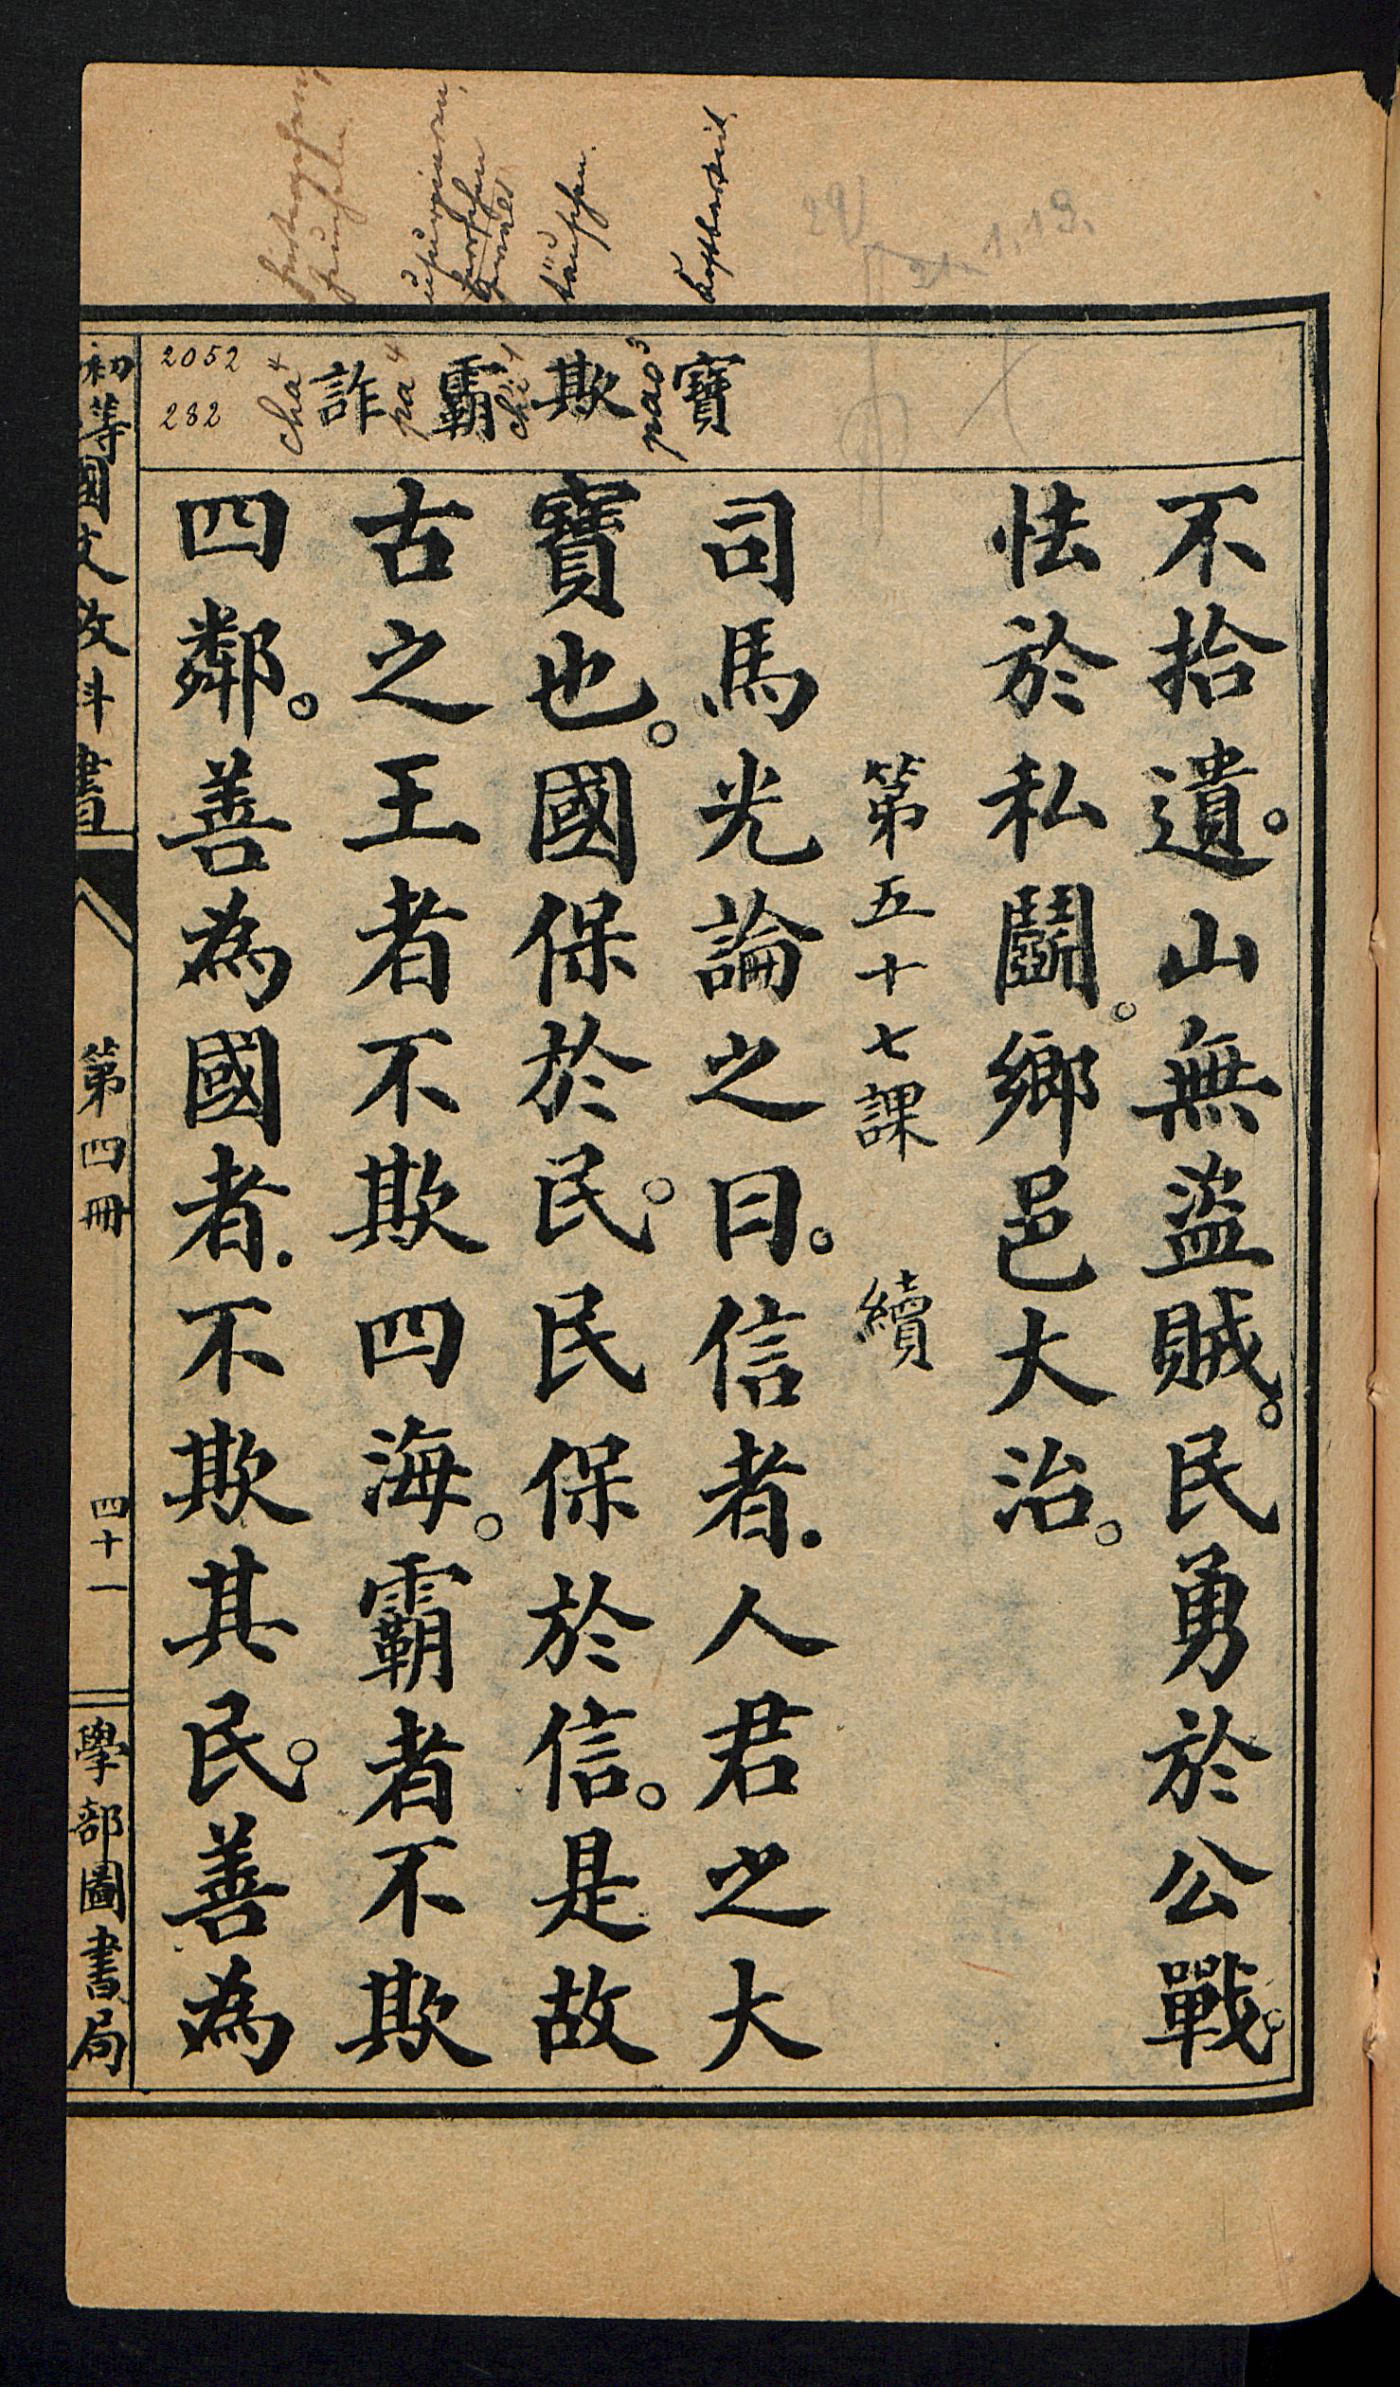 寶 欺 霸 詐
pao³
chi¹
pa⁴
cha⁴
2052
282
不拾遺。山無盜賊。民勇於公戰。
怯於私鬭。鄉邑大治。
第五十七課 續
司馬光論之曰。信者.人君之大
寶也。國保於民。民保於信。是故
古之王者不欺四海。霸者不欺
四鄰。善為國者.不欺其民。善為
初等國文教科書 第四冊 四十一 學部圖書局